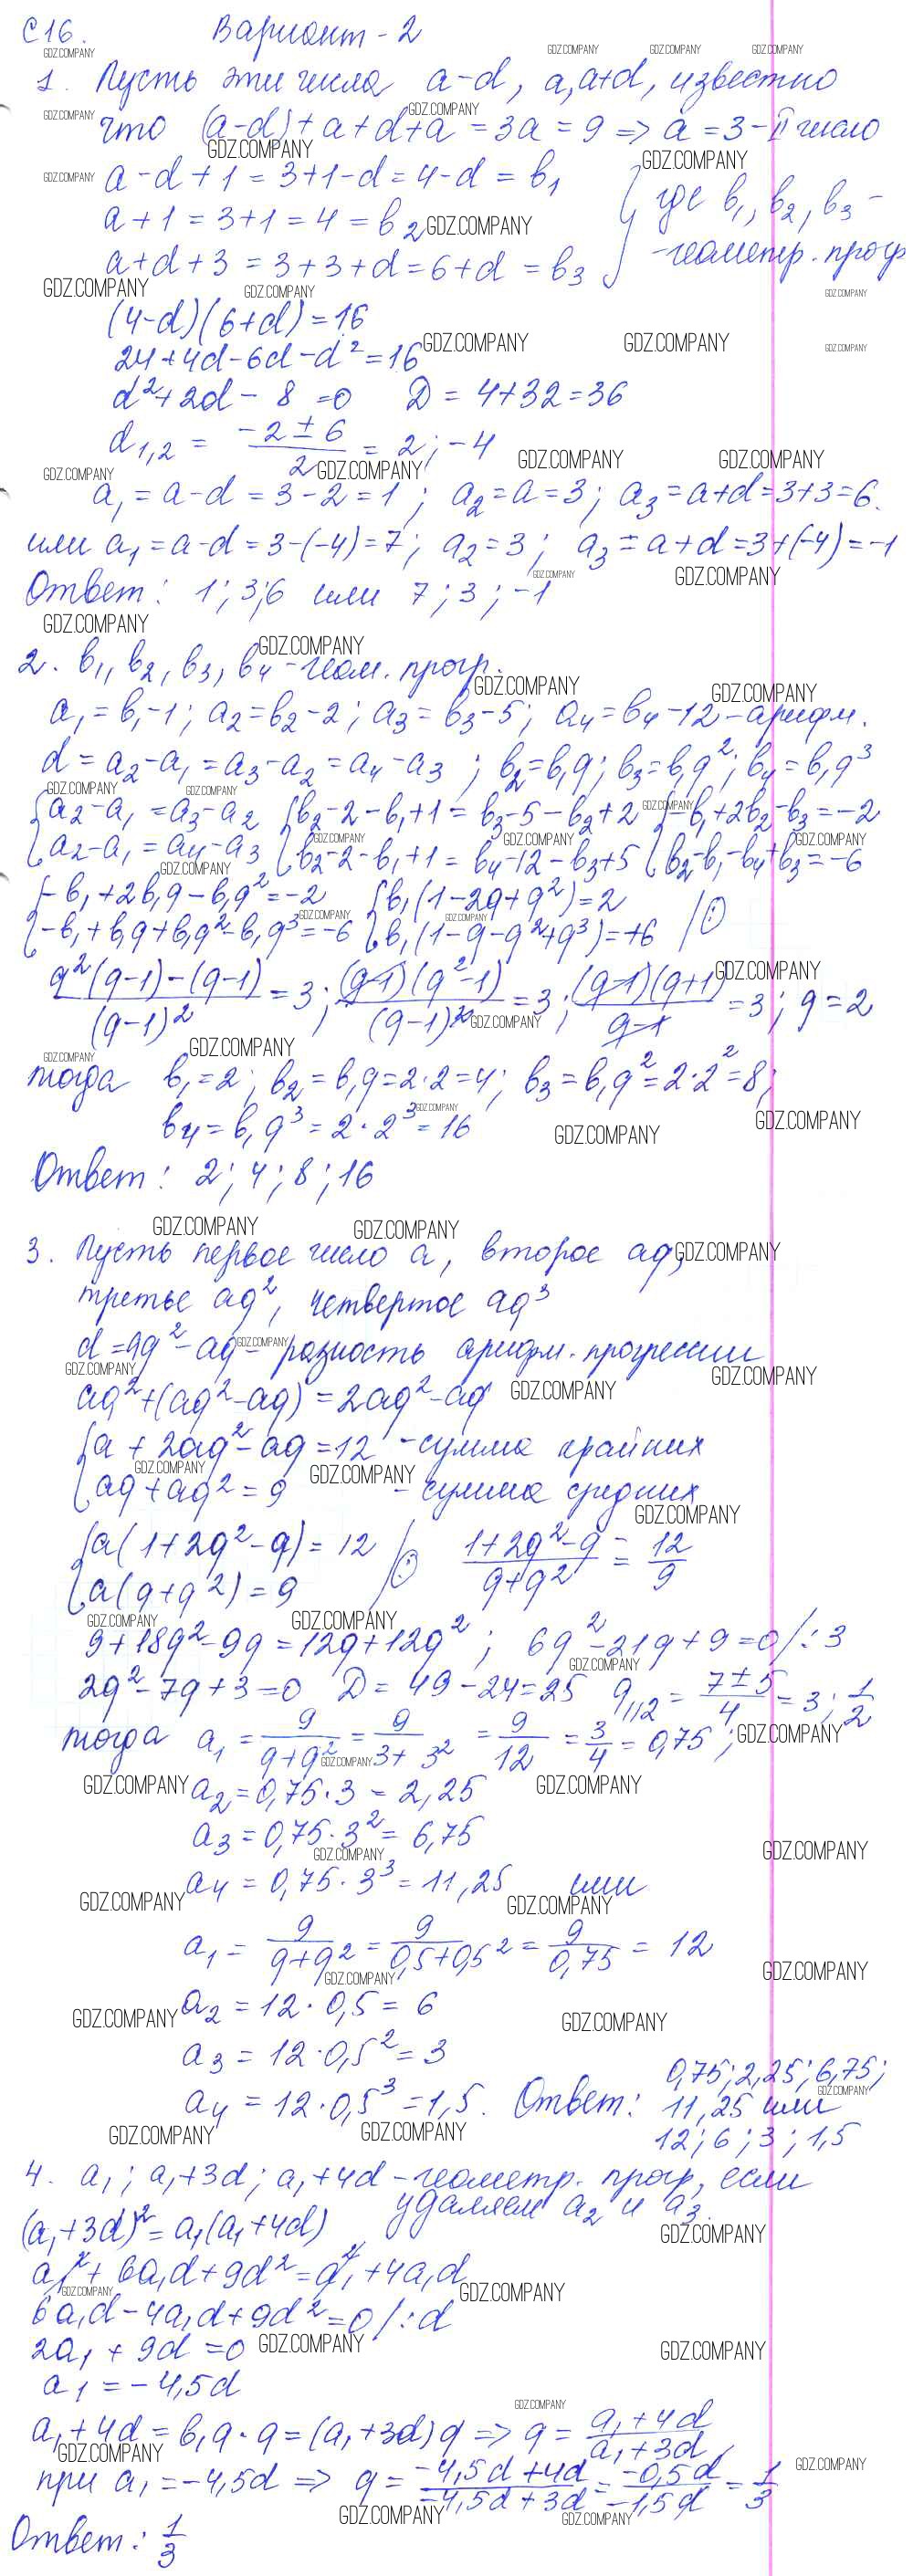 С16. Вариант - 2
1. Пусть эти числа a-d, a, a+d, известно
что (a-d)+a+d+a = 3a = 9 => a = 3 - II число
a-d+1 = 3+1-d = 4-d = b₁
a+1 = 3+1 = 4 = b₂ } где b₁, b₂, b₃ -
a+d+3 = 3+3+d = 6+d = b₃ - геометр. прогр
(4-d)(6+d) = 16
24+4d-6d-d² = 16
d²+2d-8 = 0 D = 4+32 = 36
d₁,₂ = (-2±6)/2 = 2; -4
a₁ = a-d = 3-2 = 1; a₂ = a = 3; a₃ = a+d = 3+3 = 6.
или a₁ = a-d = 3-(-4) = 7; a₂ = 3; a₃ = a+d = 3+(-4) = -1
Ответ: 1; 3; 6 или 7; 3; -1
2. b₁, b₂, b₃, b₄ - геом. прогр.
a₁ = b₁-1; a₂ = b₂-2; a₃ = b₃-5; a₄ = b₄-12 - арифм.
d = a₂-a₁ = a₃-a₂ = a₄-a₃; b₂ = b₁q; b₃ = b₁q²; b₄ = b₁q³
{a₂-a₁ = a₃-a₂ {b₂-2-b₁+1 = b₃-5-b₂+2 {-b₁+2b₂-b₃ = -2
{a₂-a₁ = a₄-a₃ {b₂-2-b₁+1 = b₄-12-b₃+5 {b₂-b₁-b₄+b₃ = -6
{-b₁+2b₁q-b₁q² = -2 {b₁(1-2q+q²) = 2
{-b₁+b₁q+b₁q²-b₁q³ = -6 {b₁(1-q-q²+q³) = +6 | :
(q²(q-1)-(q-1))/(q-1)² = 3; ((q-1)(q²-1))/(q-1)² = 3; ((q-1)(q+1))/(q-1) = 3; q = 2
тогда b₁ = 2; b₂ = b₁q = 2·2 = 4; b₃ = b₁q² = 2·2² = 8;
b₄ = b₁q³ = 2·2³ = 16
Ответ: 2; 4; 8; 16
3. Пусть первое число a, второе aq,
третье aq², четвертое aq³
d = aq²-aq - разность арифм. прогрессии
aq²+(aq²-aq) = 2aq²-aq
{a+2aq²-aq = 12 - сумма крайних
{aq+aq² = 9 - сумма средних
{a(1+2q²-q) = 12
{a(q+q²) = 9 | : (1+2q²-q)/(q+q²) = 12/9
9+18q²-9q = 12q+12q²; 6q²-21q+9 = 0 /:3
2q²-7q+3 = 0 D = 49-24 = 25 q₁,₂ = (7±5)/4 = 3; 1/2
тогда a₁ = 9/(q+q²) = 9/(3+3²) = 9/12 = 3/4 = 0,75;
a₂ = 0,75·3 = 2,25
a₃ = 0,75·3² = 6,75
a₄ = 0,75·3³ = 11,25 или
a₁ = 9/(q+q²) = 9/(0,5+0,5²) = 9/0,75 = 12
a₂ = 12·0,5 = 6
a₃ = 12·0,5² = 3
a₄ = 12·0,5³ = 1,5. Ответ: 0,75; 2,25; 6,75;
11,25 или
12; 6; 3; 1,5
4. a₁; a₁+3d; a₁+4d - геометр. прогр, если
удаляем a₂ и a₃.
(a₁+3d)² = a₁(a₁+4d)
a₁²+6a₁d+9d² = a₁²+4a₁d
6a₁d-4a₁d+9d² = 0 /:d
2a₁+9d = 0
a₁ = -4,5d
a₁+4d = b₁q·q = (a₁+3d)q => q = (a₁+4d)/(a₁+3d),
при a₁ = -4,5d => q = (-4,5d+4d)/(-4,5d+3d) = (-0,5d)/(-1,5d) = 1/3
Ответ: 1/3
GDZ.COMPANY